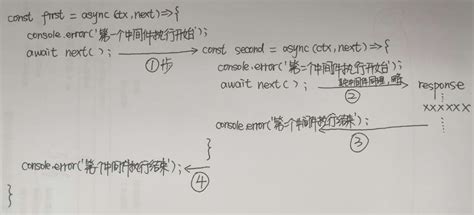 const first = async (ctx,next)=>{
console.error('第一个中间件执行开始');
await next( ); ①步 const second = async (ctx,next)=>{
console.error('第二个中间件执行开始');
await next( ); ② 其他中间件同理,略 response
xxxxxx
console.error('第二个中间件执行结束'); ③
}
console.error('第一个中间件执行结束'); ④
}